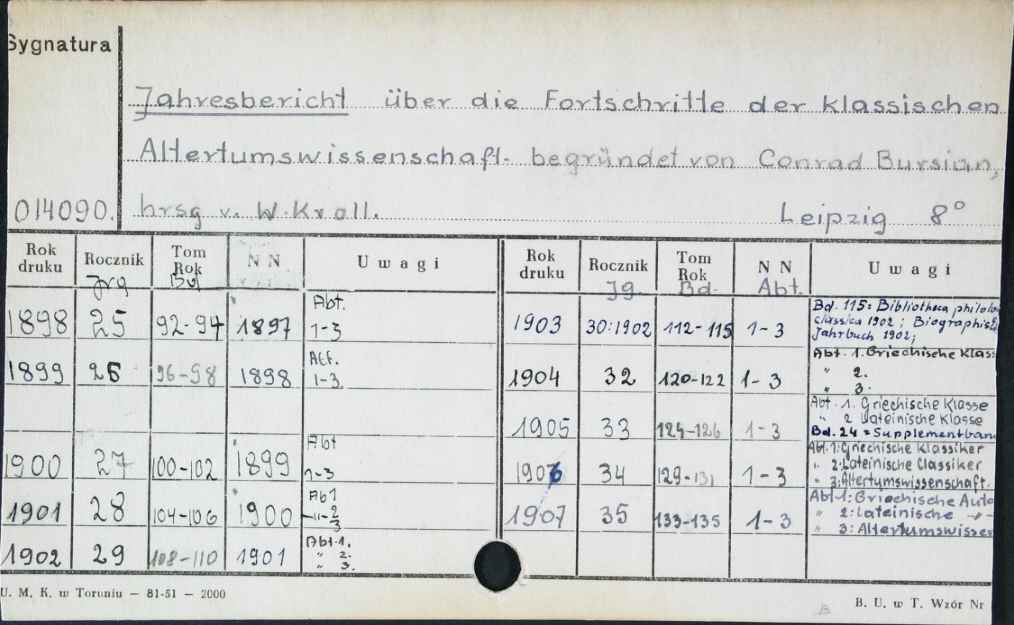 Sygnatura
Jahresbericht über die Fortschritte der klassischen
Altertumswissenschaft. begründet von Conrad Bursian,
014090. hrsg v. W. Kroll. Leipzig 8°
Rok druku Rocznik Tom Rok N N Uwagi
Jrg Bd
1898 25 92-94 1897 Abt. 1-3
1899 26 96-98 1898 Abt. 1-3
1900 27 100-102 1899 Abt 1-3
1901 28 104-106 1900 Abt
1902 29 108-110 1901 Abt. 1.
" 2.
" 3.
Rok druku Rocznik Tom Rok N N Uwagi
Jg. Bd. Abt.
1903 30:1902 112-115 1-3 Bd. 115= Bibliotheca philolo
classica 1902 ; Biographis
Jahrbuch 1902;
1904 32 120-122 1-3 Abt. 1. Griechische Klass
" 2.
" 3.
1905 33 124-126 1-3 Abt. 1. Griechische Klasse
" 2 Lateinische Klasse
Bd. 24 = Supplementban
1906 34 129-131 1-3 Abt. 1: Griechische Klassiker
" 2: Lateinische Classiker
" 3: Altertumswissenschaft.
1907 35 133-135 1-3 Abt 1: Griechische Auto
" 2: Lateinische -"-
" 3: Altertumswisse
U. M. K. w Toruniu — 81-51 — 2000
B. U. w T. Wzór Nr